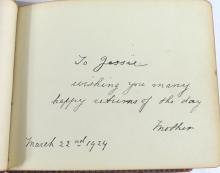 To Jessie
wishing you many
happy returns of the day
Mother
March 22nd 1924